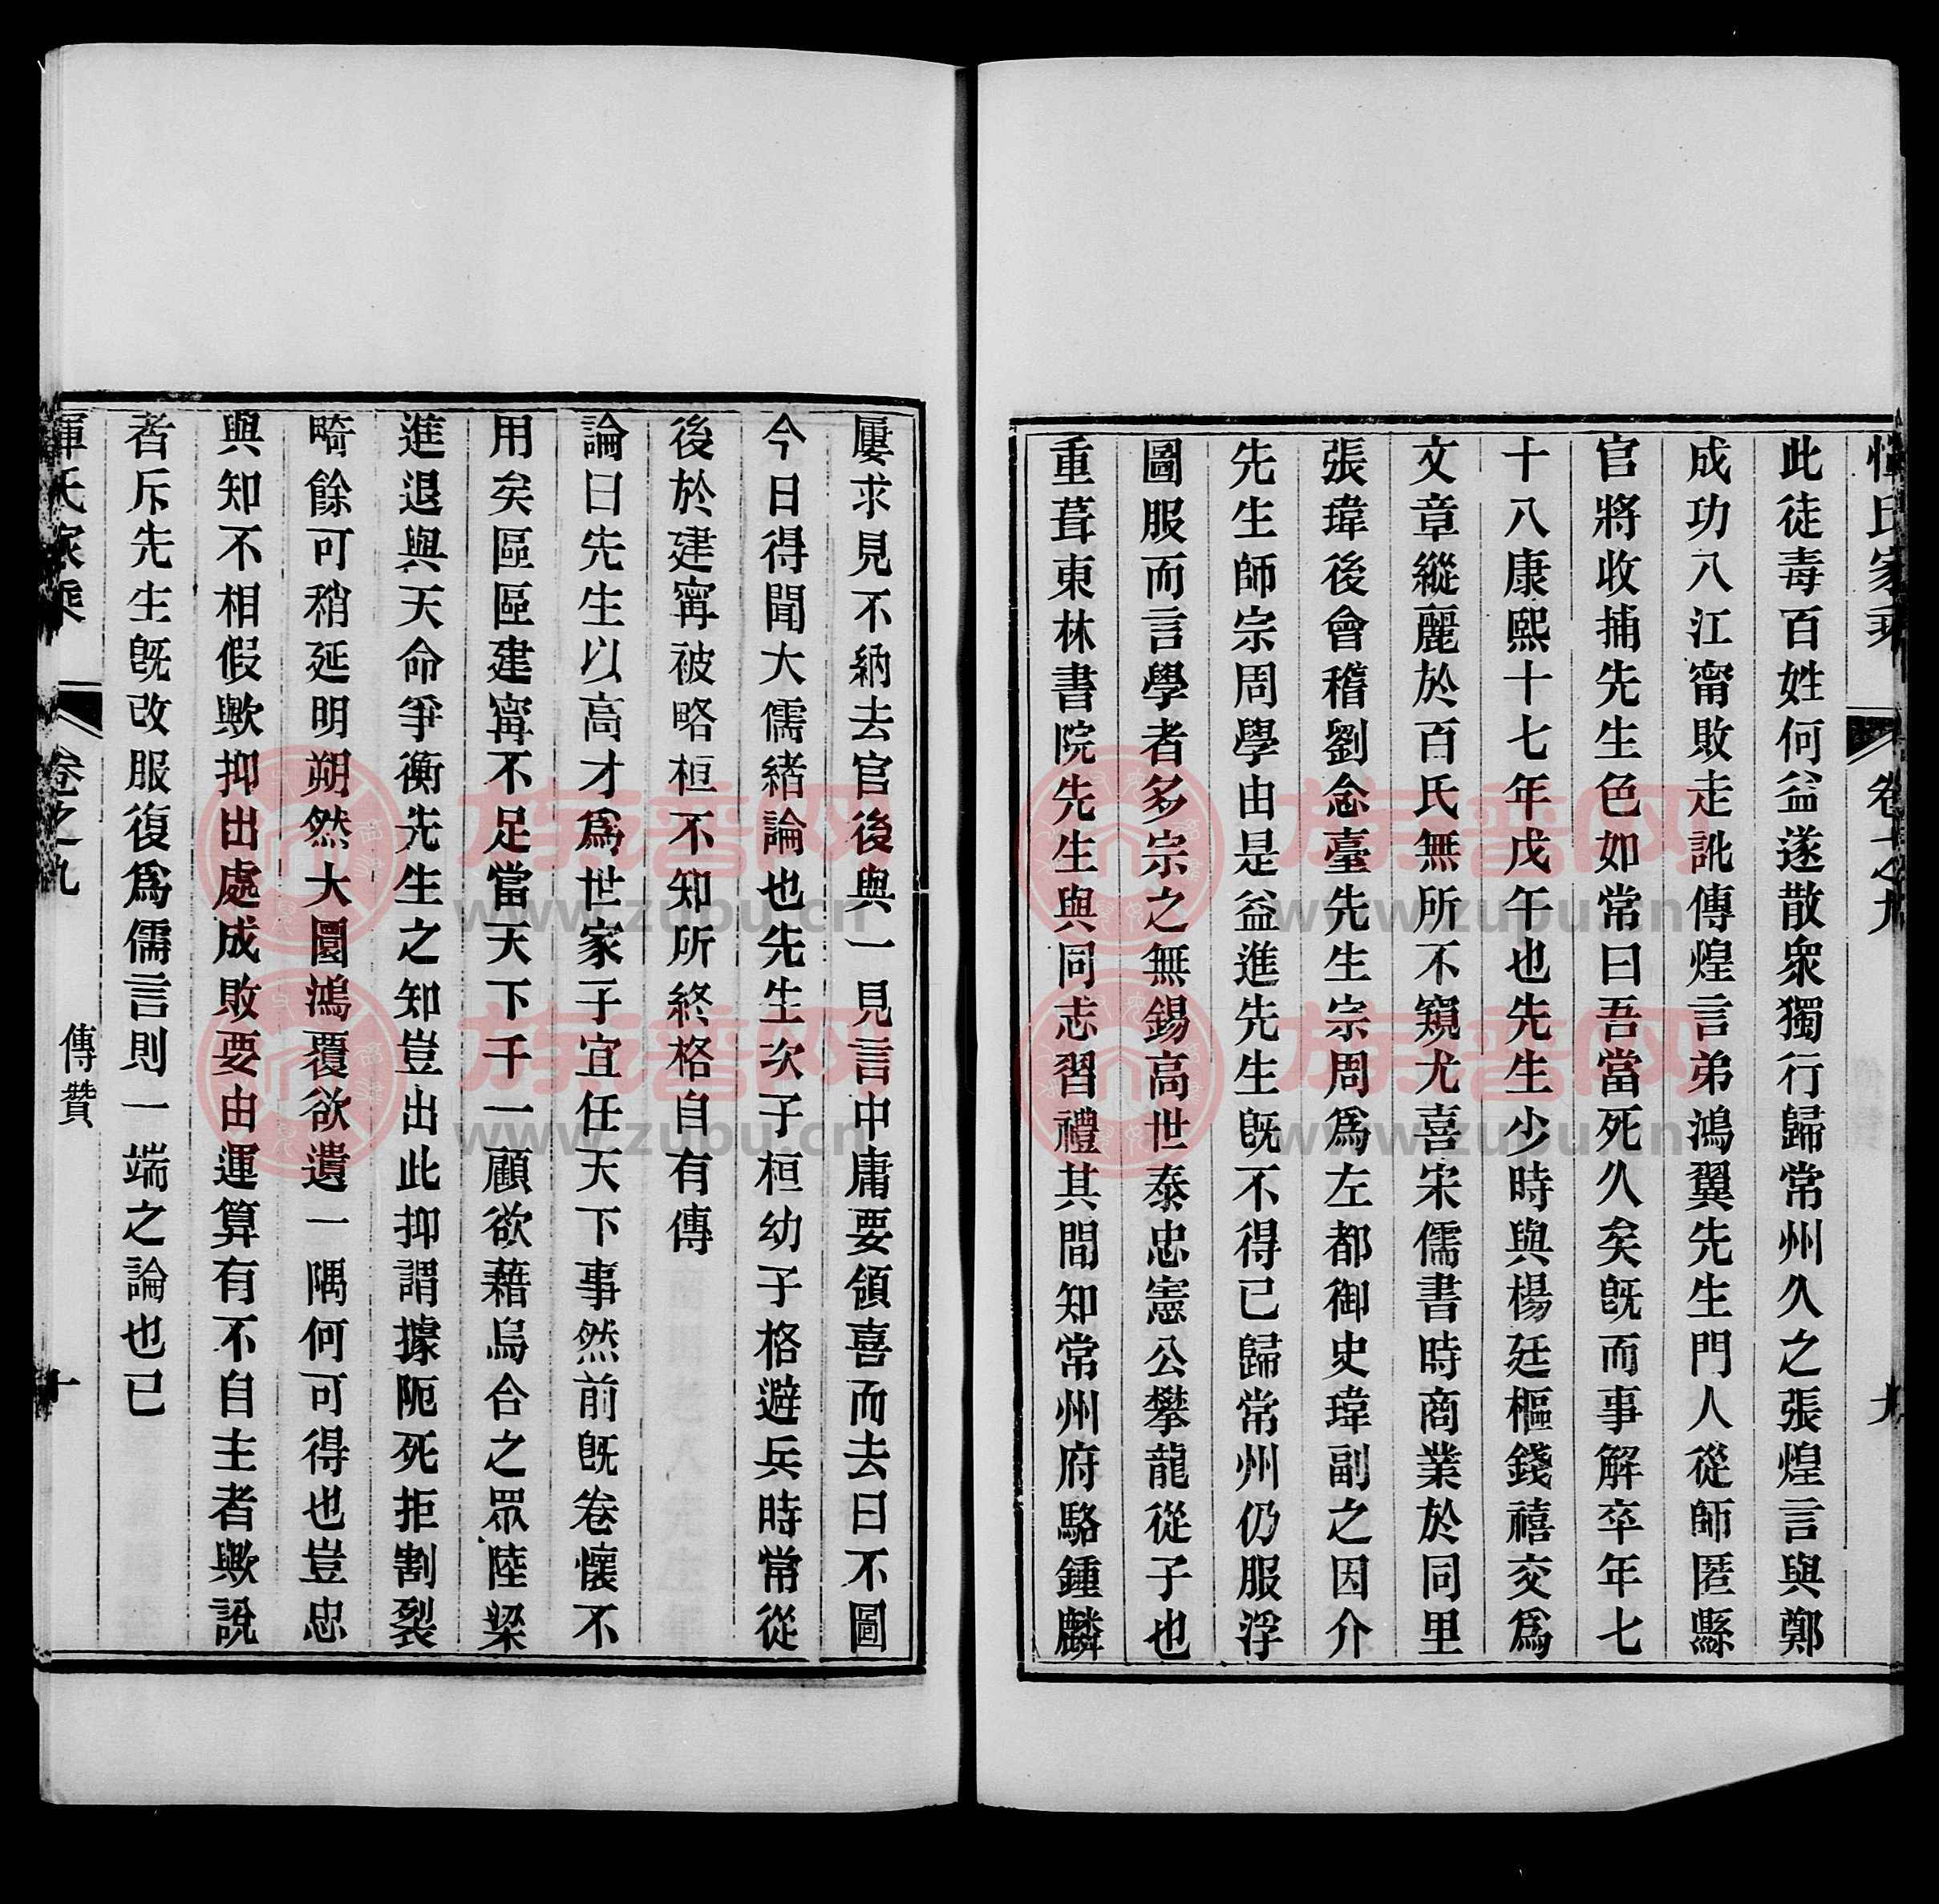 惲氏家乘 卷之九 九
此徒毒百姓何益遂散衆獨行歸常州久之張煌言與鄭
成功入江甯敗走訛傳煌言弟鴻翼先生門人從師匿縣
官將收捕先生色如常曰吾當死久矣旣而事解卒年七
十八康熙十七年戊午也先生少時與楊廷樞錢禧交爲
文章縱麗於百氏無所不窺尤喜宋儒書時商業於同里
張瑋後會稽劉念臺先生宗周爲左都御史瑋副之因介
先生師宗周學由是益進先生旣不得已歸常州仍服浮
圖服而言學者多宗之無錫高世泰忠憲公攀龍從子也
重葺東林書院先生與同志習禮其間知常州府駱鍾麟
屢求見不納去官後與一見言中庸要領喜而去曰不圖
今日得聞大儒緒論也先生次子桓幼子格避兵時常從
後於建甯被略桓不知所終格自有傳
論曰先生以高才爲世家子宜任天下事然前旣卷懷不
用矣區區建甯不足當天下千一顧欲藉烏合之眾陸梁
進退與天命爭衡先生之知豈出此抑謂據阨死拒割裂
畸餘可稍延明朔然大圜鴻覆欲遺一隅何可得也豈忠
與知不相假歟抑出處成敗要由運算有不自主者歟說
者斥先生旣改服復爲儒言則一端之論也已
惲氏家乘 卷之九 傳贊 十
族譜网
www.zupu.cn
族譜网
www.zupu.cn
族譜网
www.zupu.cn
族譜网
www.zupu.cn